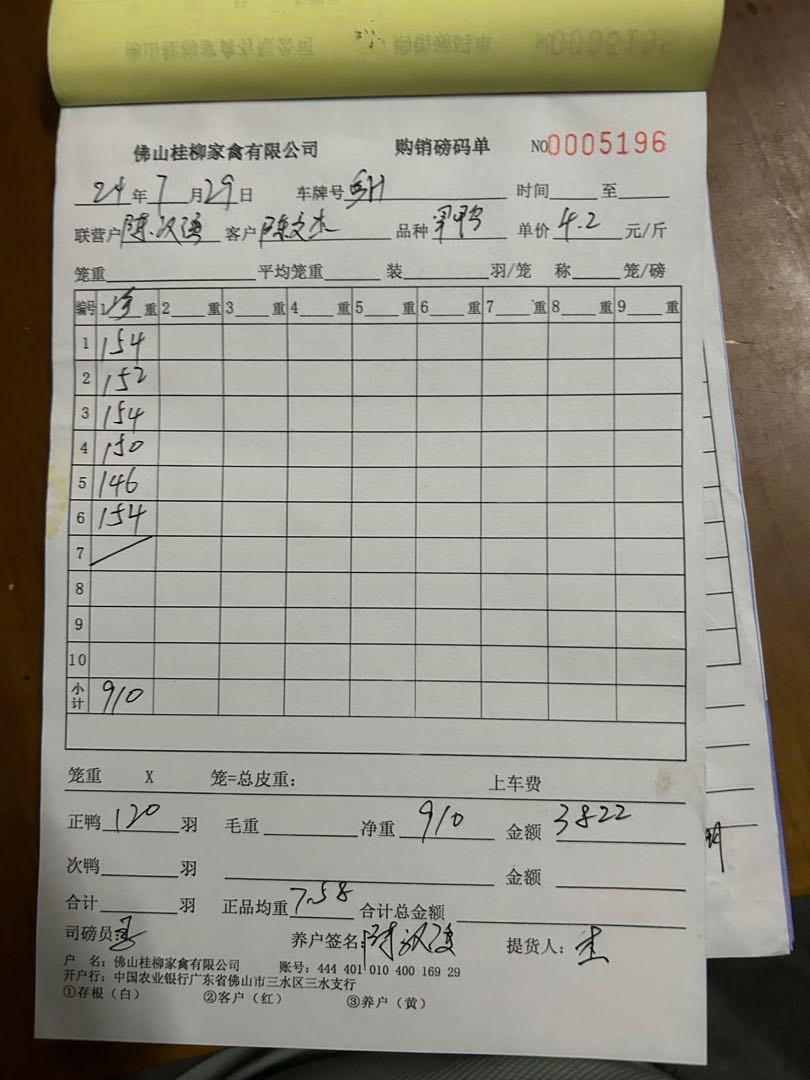 佛山桂柳家禽有限公司 购销磅码单 NO0005196
24年7月29日 车牌号 时间 至
联营户陈汉 客户陈文杰 品种 鸭 单价4.2元/斤
笼重 平均笼重 装 羽/笼 称 笼/磅
编号 1 净 重 2 重 3 重 4 重 5 重 6 重 7 重 8 重 9 重
1 154
2 152
3 154
4 150
5 146
6 154
7
8
9
10
小计 910
笼重 X 笼=总皮重: 上车费
正鸭120羽 毛重 净重910 金额3822
次鸭 羽 金额
合计 羽 正品均重7.58 合计总金额
司磅员 养户签名:陈汉 提货人:杰
户 名:佛山桂柳家禽有限公司 账号:444 401 010 400 169 29
开户行:中国农业银行广东省佛山市三水区三水支行
①存根(白) ②客户(红) ③养户(黄)